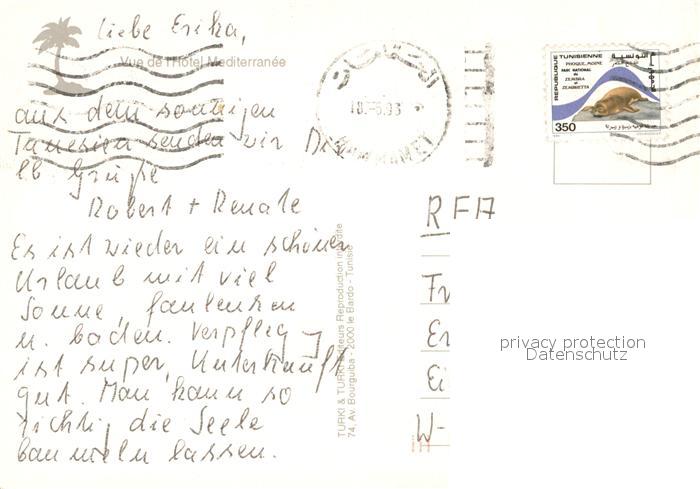 Liebe Erika,
Vue de l'Hôtel Mediterranée
aus dem sonnigen
Tunesien senden wir Dir
lb. Grüße
Robert + Renate
Es ist wieder ein schöner
Urlaub mit viel
Sonne, faulenzen
u. baden. Verpfleg
ist super, Unterkunft
gut. Man kann so
richtig die Seele
baumeln lassen.
TURKI & TURKI Editeurs Reproduction interdite
74, Av. Bourguiba - 2000 le Bardo - Tunisie
HAMMAMET
REPUBLIQUE TUNISIENNE
PHOQUE MOINE
PARC NATIONAL
DE
ZEMBRA
et
ZEMBRETTA
350
RFA
Fr
Er
Ei
W-
privacy protection
Datenschutz